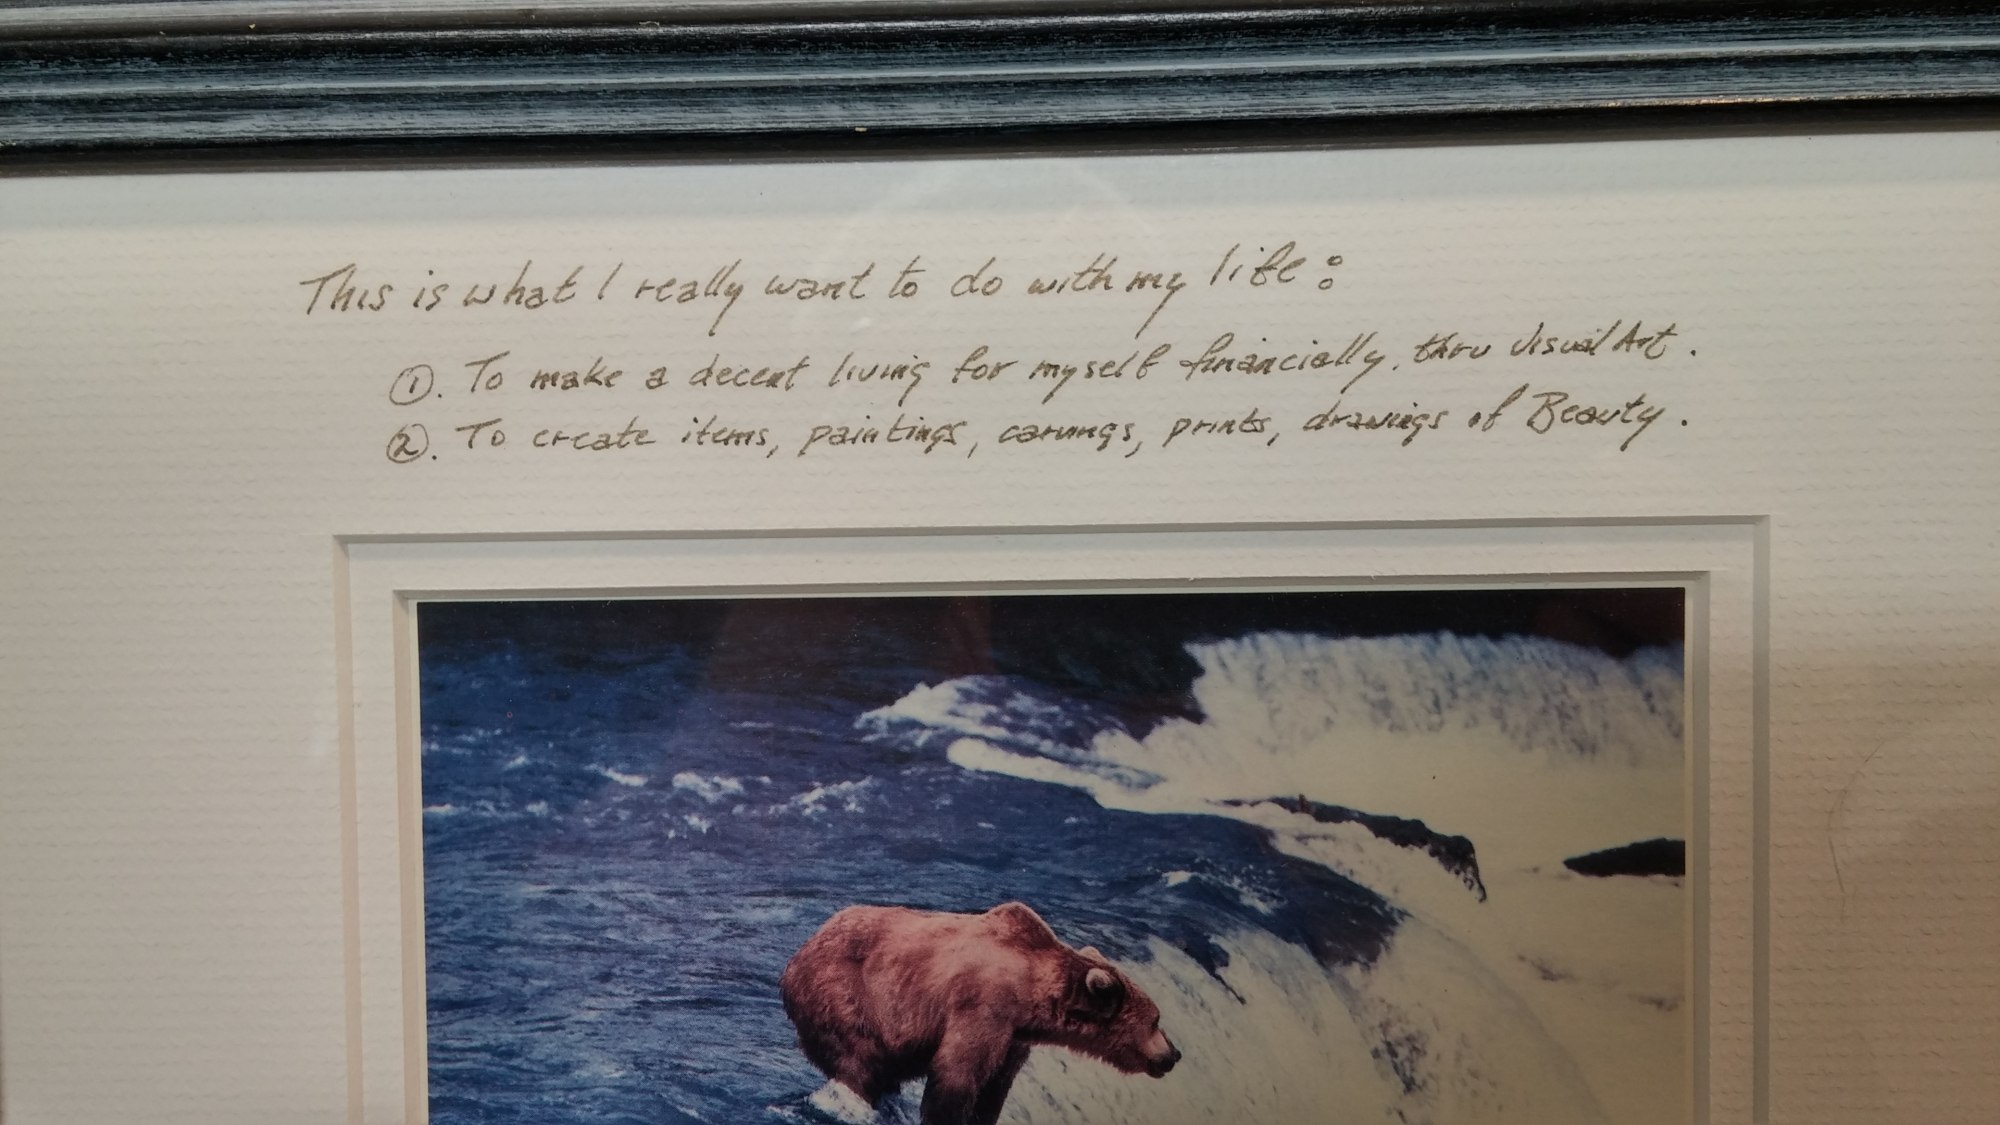 This is what I really want to do with my life:
①. To make a decent living for myself financially, thru Visual Art.
②. To create items, paintings, carvings, prints, drawings of Beauty.